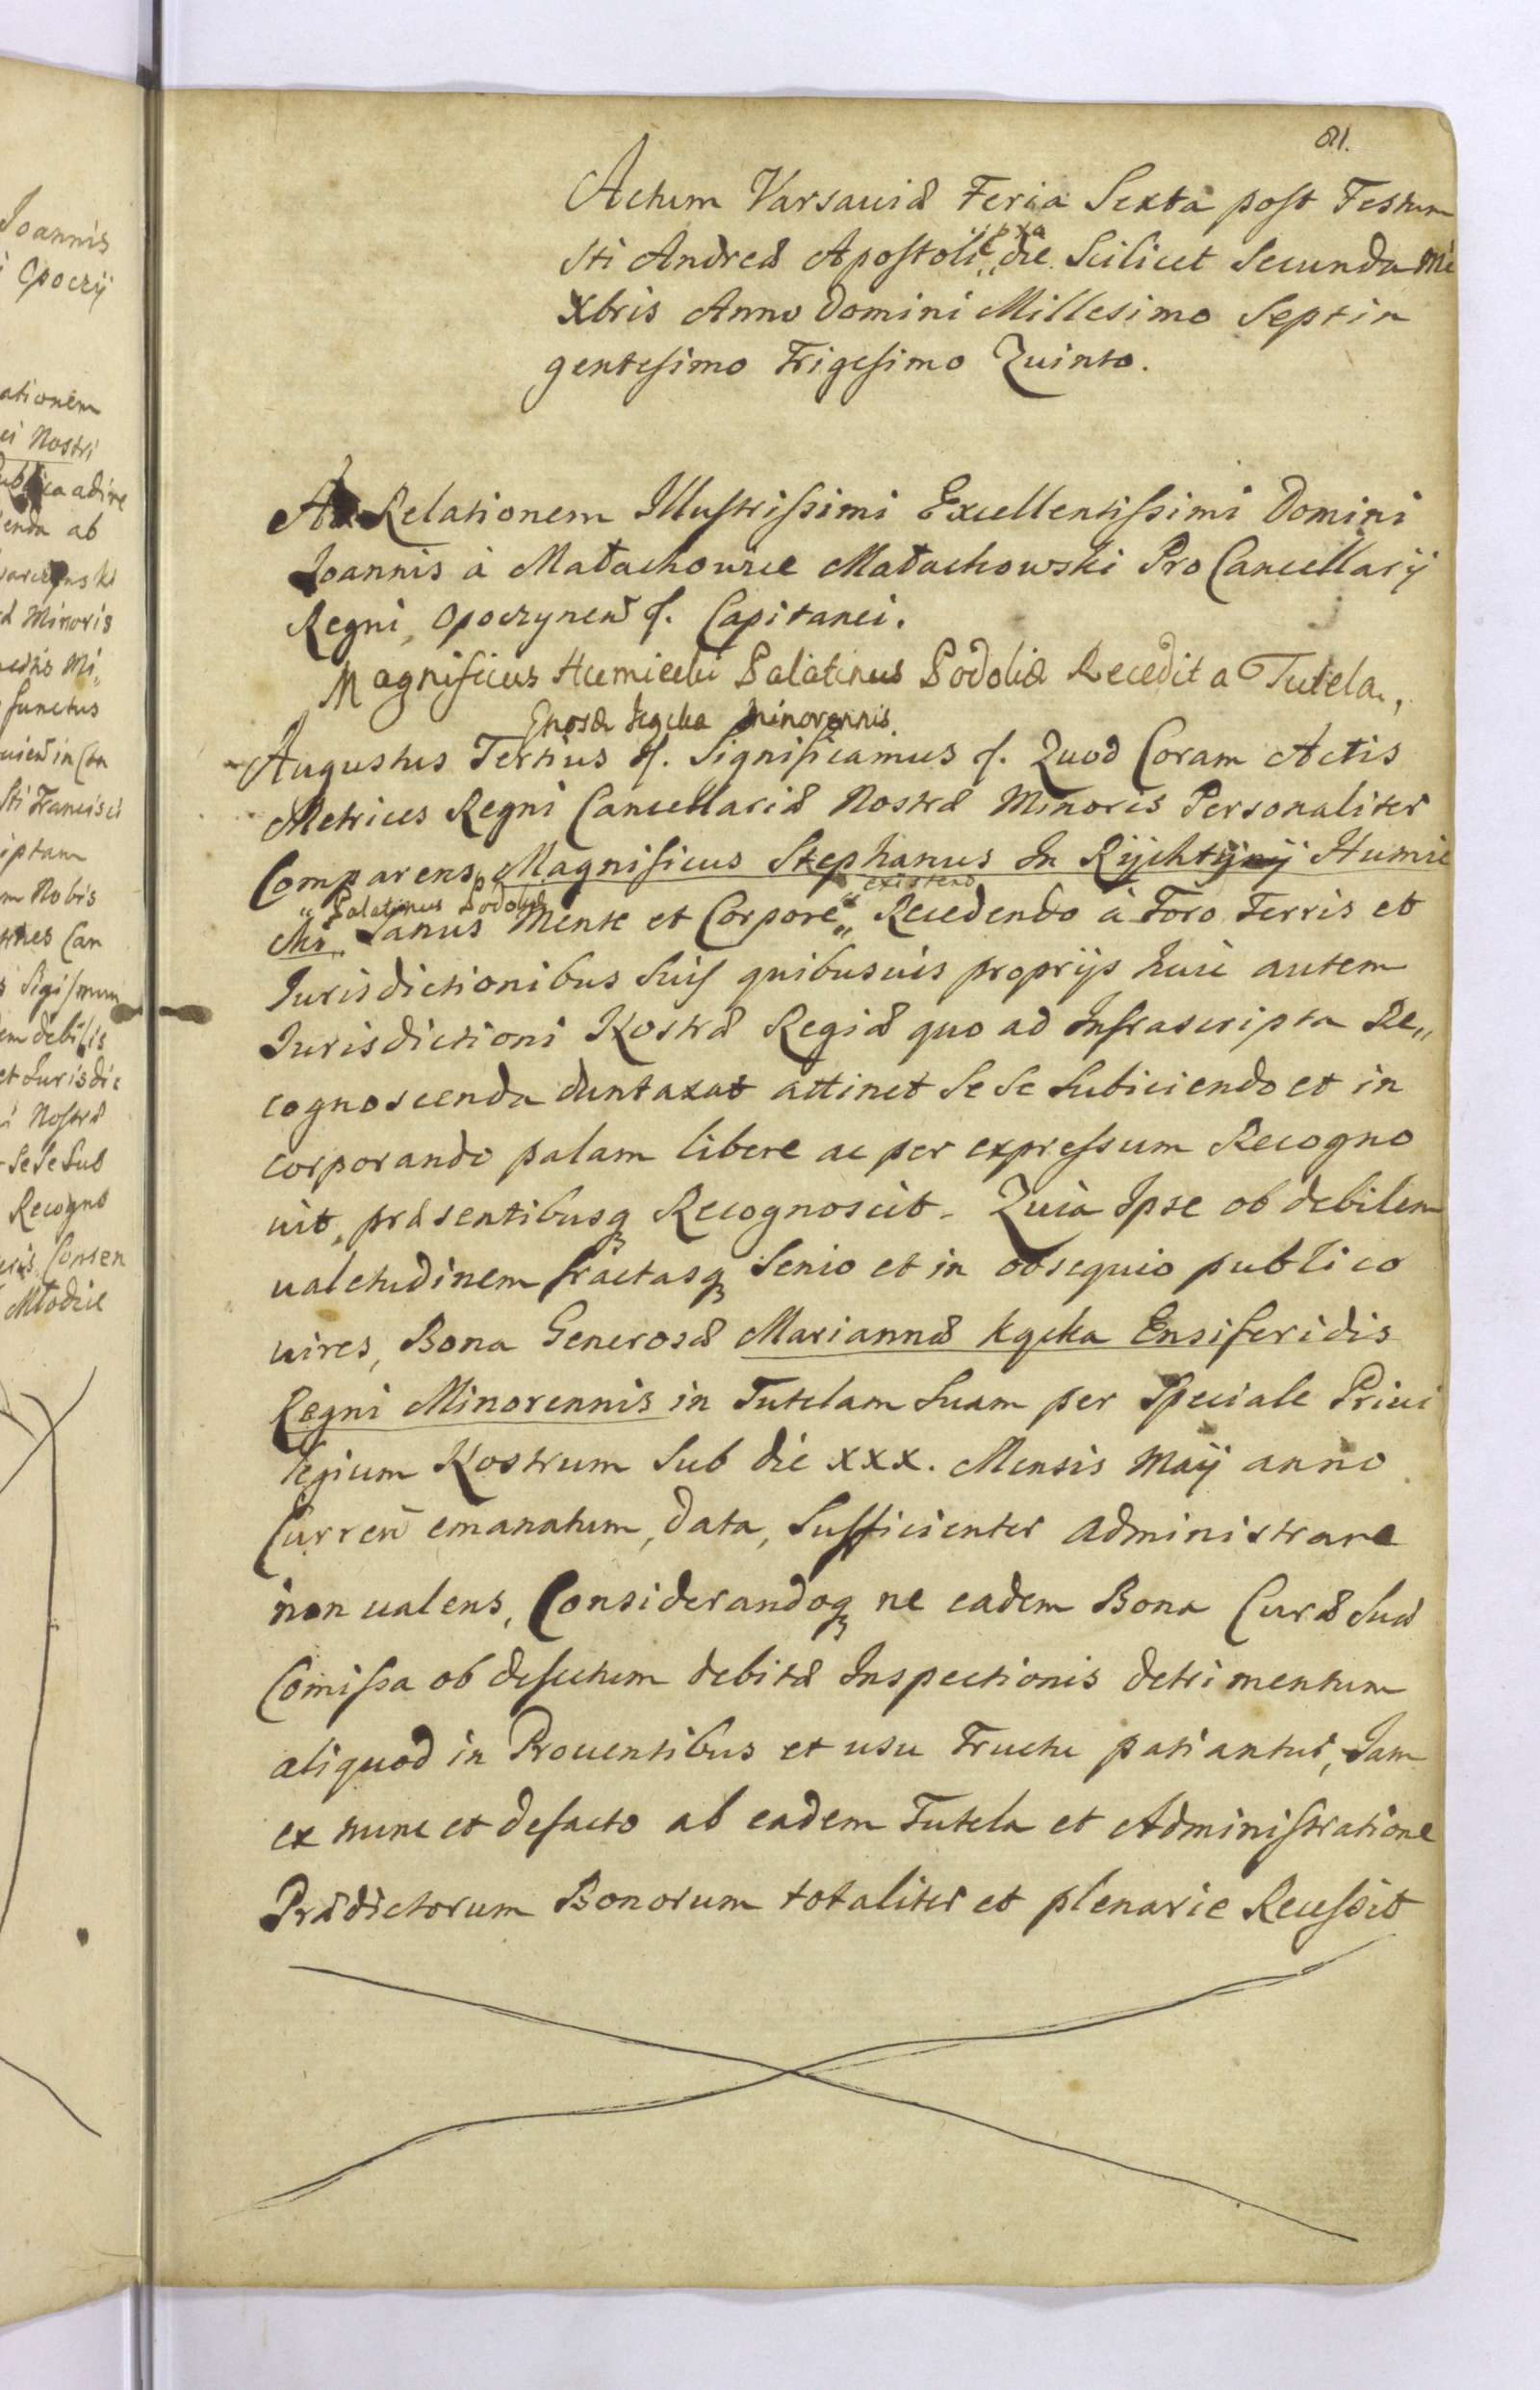 Joannis
i Opoczÿ
ationem
ei Nostri
adire
enda ab
d Minoris
Mi,,
functus
Sti Francisci
iptam
m Nobis
Can
s Sigismun
em debilis
et Jurisdic
i Nostræ
Sese Sub
Recogno
Consen
Młodzie
81.
Actum Varsaviæ Feria Sexta post Festum
Sti Andreæ Apostoli,, pxa die Scilicet Secunda Mi
Xbris Anno Domini Millesimo Septin
gentesimo Trigesimo Quinto.
Ad Relationem Illustrissimi Excellentissimi Domini
Joannis à Małachowice Małachowski ProCancellarÿ
Regni, Opoczynen &. Capitanei.
Magnificus Humiecki Palatinus Podoliæ Recedit a Tutela,
Gnosæ Kącka Minorennis.
Augustus Tertius &. Significamus &. Quod Coram Actis
Metrices Regni Cancellariæ Nostræ Minoris Personaliter
Comparens Magnificus Stephanus In Rÿchtÿ Humie
cki,, Palatinus Podoliæ Sanus Mente et Corpore,, existens Recedendo à Foro Terris et
Jurisdictionibus Suis quibusuis proprÿs huic autem
Jurisdictioni Nostræ Regiæ quo ad Infrascripta Re,,
cognoscenda duntaxat attinet Se Se Subiiciendo et in
corporando palam libere ac per expressum Recogno
uit, præsentibusq Recognoscit. Quia Ipse ob debilem
ualetudinem fractasq Senio et in obsequio publico
uires, Bona Generosæ Mariannæ Kącka Ensiferidis
Regni Minorennis in Tutelam Suam per Speciale Priui
legium Nostrum Sub die xxx. Mensis Maÿ anno
Curren emanatum, data, Sufficienter administrare
non ualens, Considerandoq ne eadem Bona Curæ Suæ
Comissa ob defectum debitæ Inspectionis detrimentum
aliquod in Prouentibus et usu Fructu patiantur, Jam
ex nunc et defacto ab eadem Tutela et Administratione
Prædictorum Bonorum totaliter et plenarie Recessit